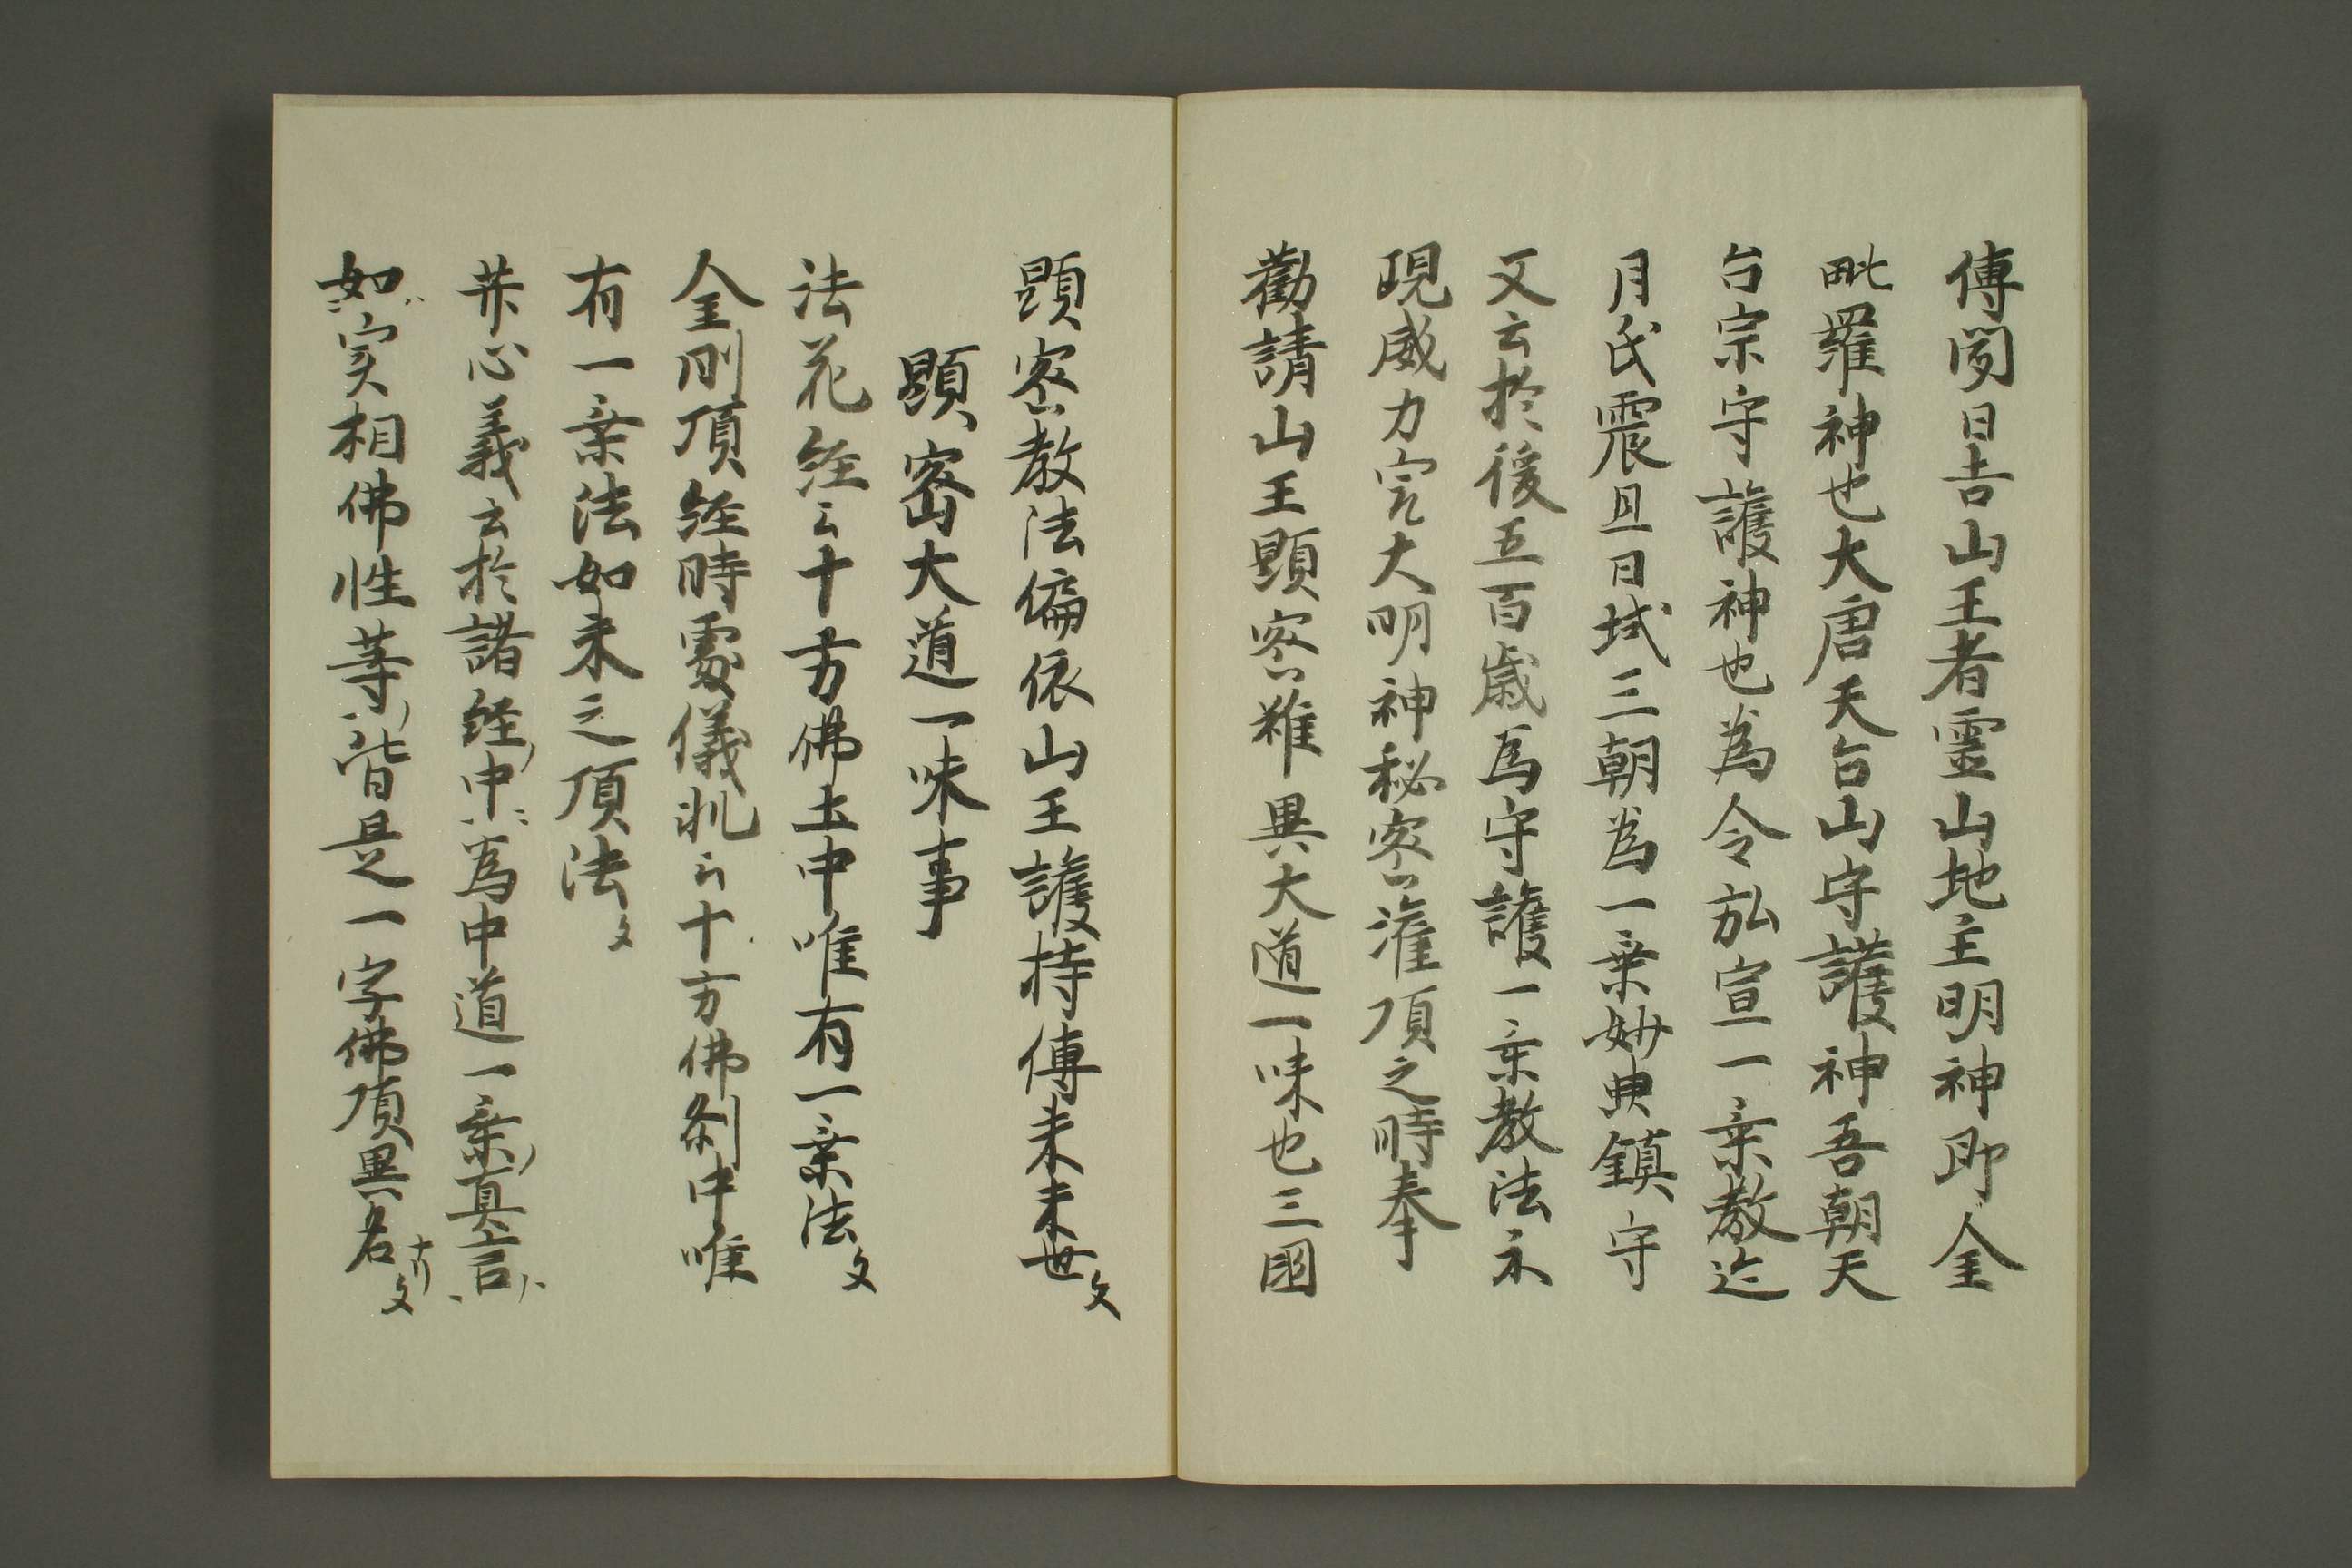 傳聞日吉山王者霊山地主明神即金
毗羅神也大唐天台山守護神吾朝天
台宗守護神也為令弘宣一乗教迹
月氏震旦日域三朝為一乗妙典鎮守
文云於後五百歳為守護一乗教法示
現威力究大明神秘密灌頂之時奉
勧請山王顕密雖異大道一味也三国
顕密教法偏依山王護持傳来末世文
顕密大道一味事
法花経云十方佛土中唯有一乗法文
金剛頂経時処儀軌云十方佛刹中唯
有一乗法如来之頂法文
菩心義云於諸経中為中道一乗真言
如実相佛性等皆是一字佛頂異名文